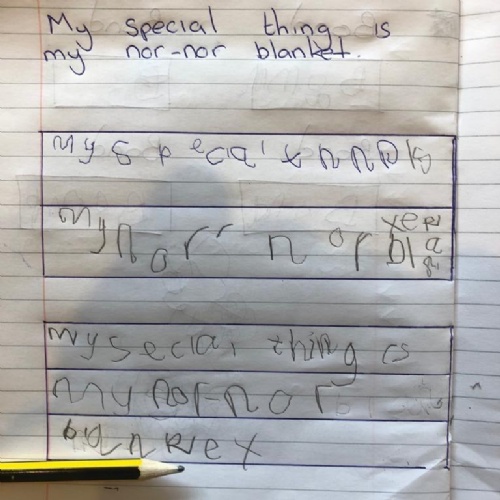 My special thing is
my nor-nor blanket.
My special
My norr nor
My secial thing is
my nor-nor